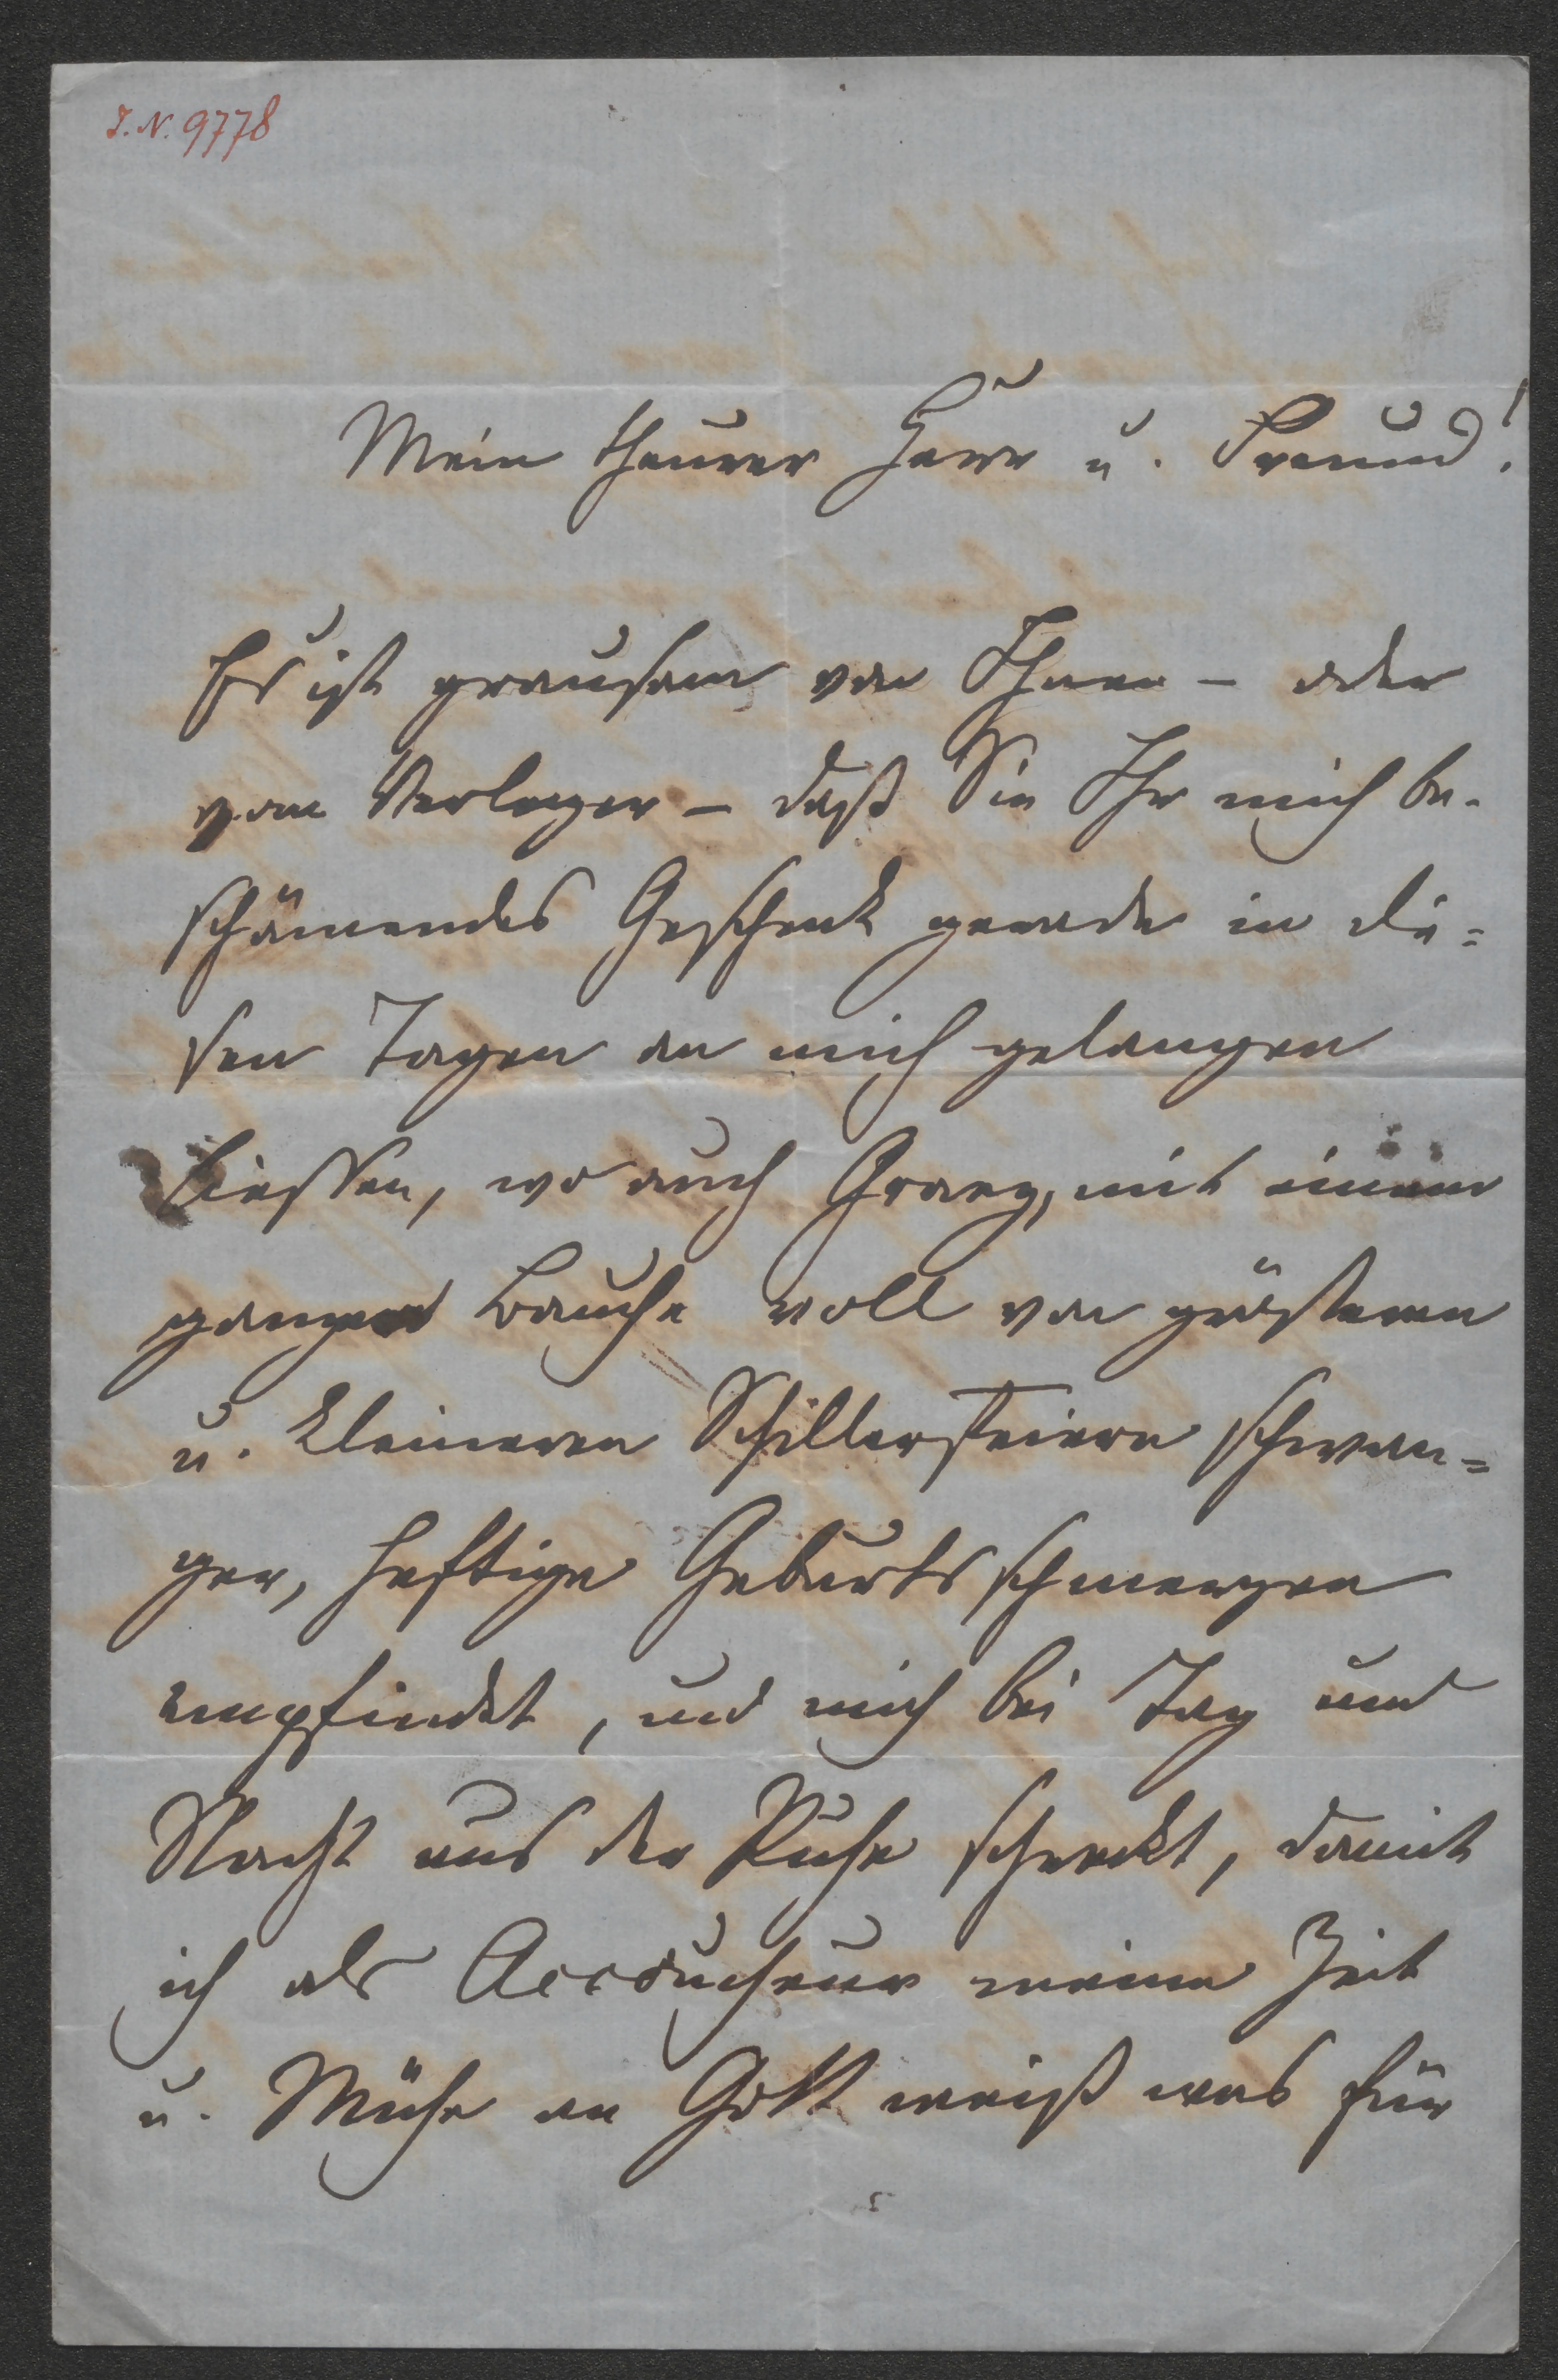 I.N. 9778
Mein theurer Herr u. Freund!
Es ist grausam von Ihnen – oder
vom Verleger – daß Sie Ihr mich be-
schämendes Geschenk gerade in die=
sen Tagen an mich gelangen
liessen, wo auch Graez, mit einem
ganzen Bauche voll von größeren
u. kleineren Schillerfeiern schwan=
ger, heftige Geburtsschmerzen
empfindet, und mich bei Tag und
Nacht aus der Ruhe schreckt, damit
ich als Accoucheur meine Zeit
u. Mühe an Gott weiß was für